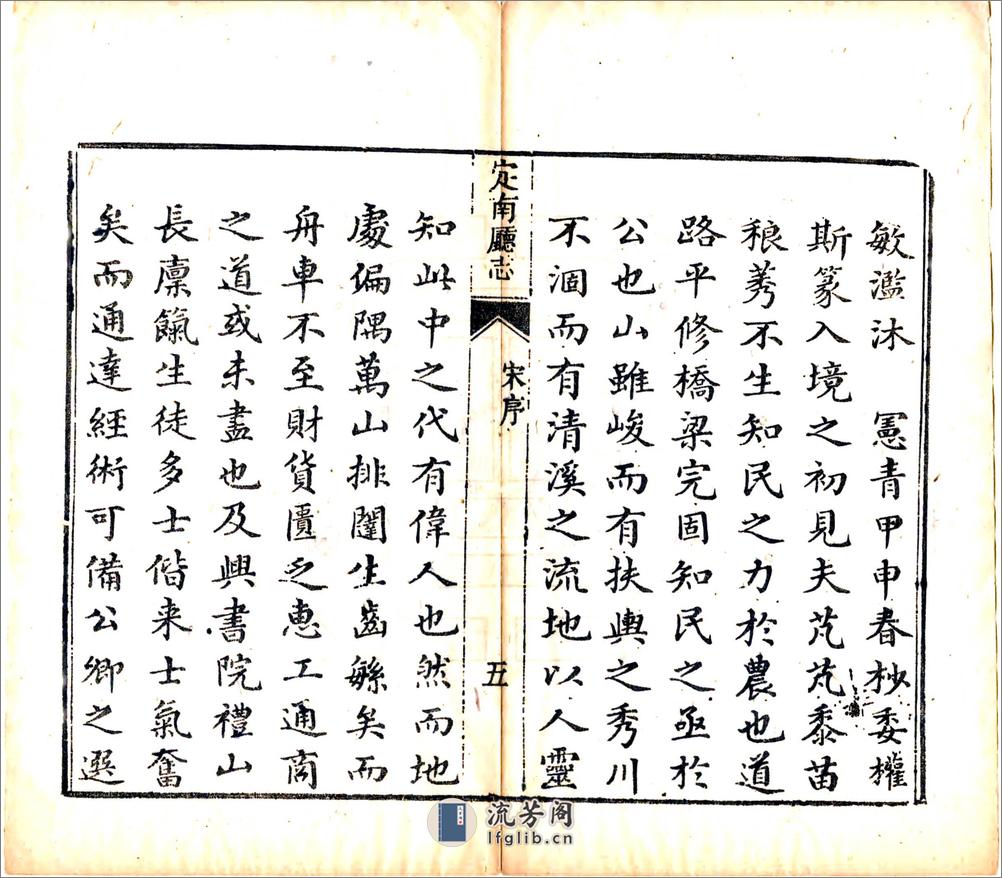 敏濫沐　憲青甲申春杪委權
斯篆入境之初見夫芃芃黍苗
稂莠不生知民之力於農也道
路平修橋梁完固知民之亟於
公也山雖峻而有扶輿之秀川
不涸而有清溪之流地以人靈
定南廳志
宋序
五
知此中之代有偉人也然而地
處偏隅萬山排闥生齒緐矣而
舟車不至財貨匱乏惠工通商
之道或未盡也及興書院禮山
長廩餼生徒多士偕来士氣奮
矣而通達經術可備公卿之選
流芳阁
lfglib.cn